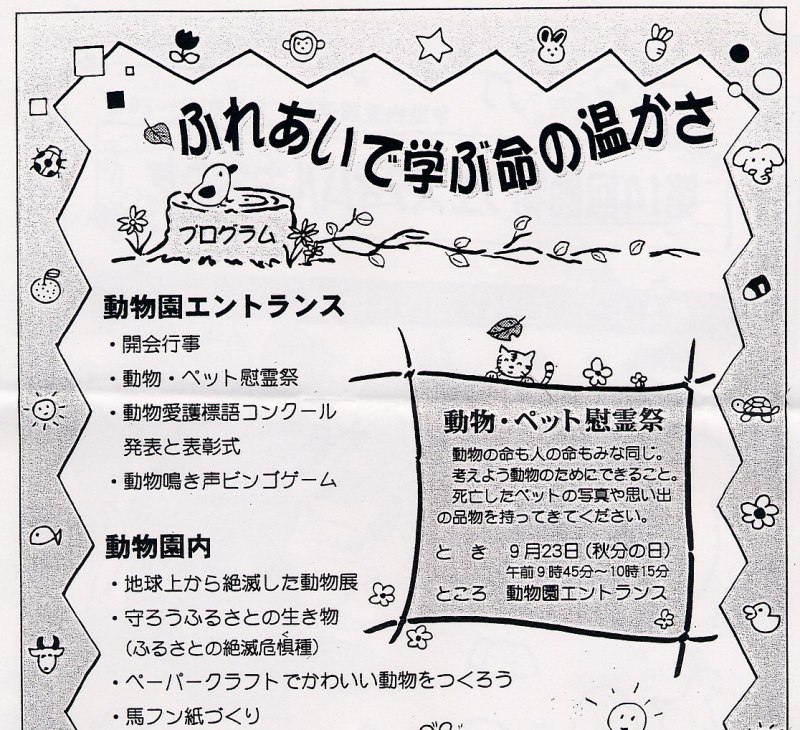 ふれあいで学ぶ命の温かさ
プログラム
動物園エントランス
・開会行事
・動物・ペット慰霊祭
・動物愛護標語コンクール
発表と表彰式
・動物鳴き声ビンゴゲーム
動物・ペット慰霊祭
動物の命も人の命もみな同じ。
考えよう動物のためにできること。
死亡したペットの写真や思い出
の品物を持ってきてください。
と き 9月23日(秋分の日)
午前9時45分〜10時15分
ところ 動物園エントランス
動物園内
・地球上から絶滅した動物展
・守ろうふるさとの生き物
(ふるさとの絶滅危惧種)
く
・ペーパークラフトでかわいい動物をつくろう
・馬フン紙づくり